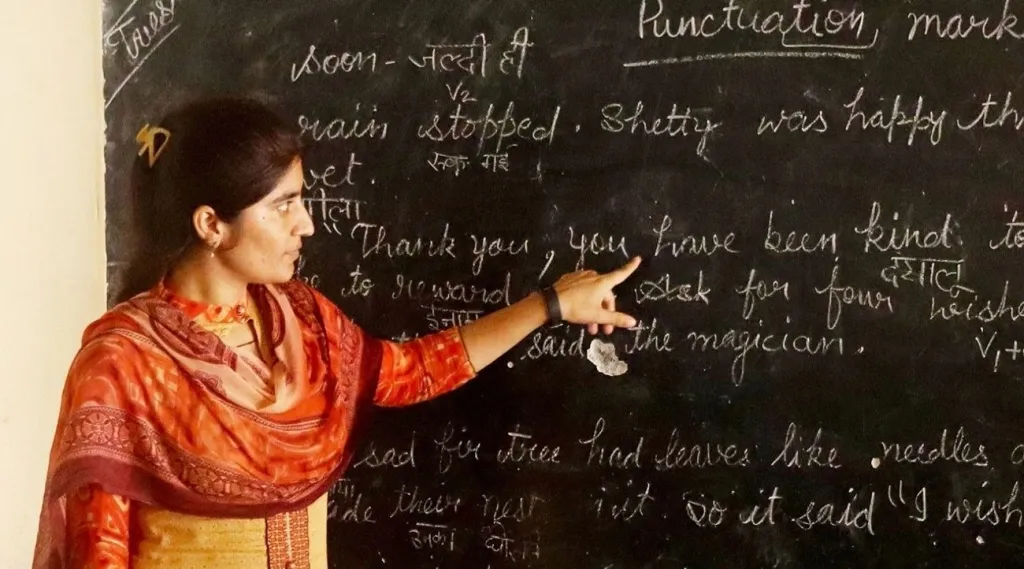 Trees
Punctuation, mark
soon - जल्दी ही
V2
rain stopped. Shetty was happy th
रुक गई
wet.
गीला
"Thank you, you have been kind to
दयालु
to reward Ask for four wishe
ईनाम
said the magician. V1+
sad fir tree had leaves like needles
their nest it. So it said "I wish
उनका